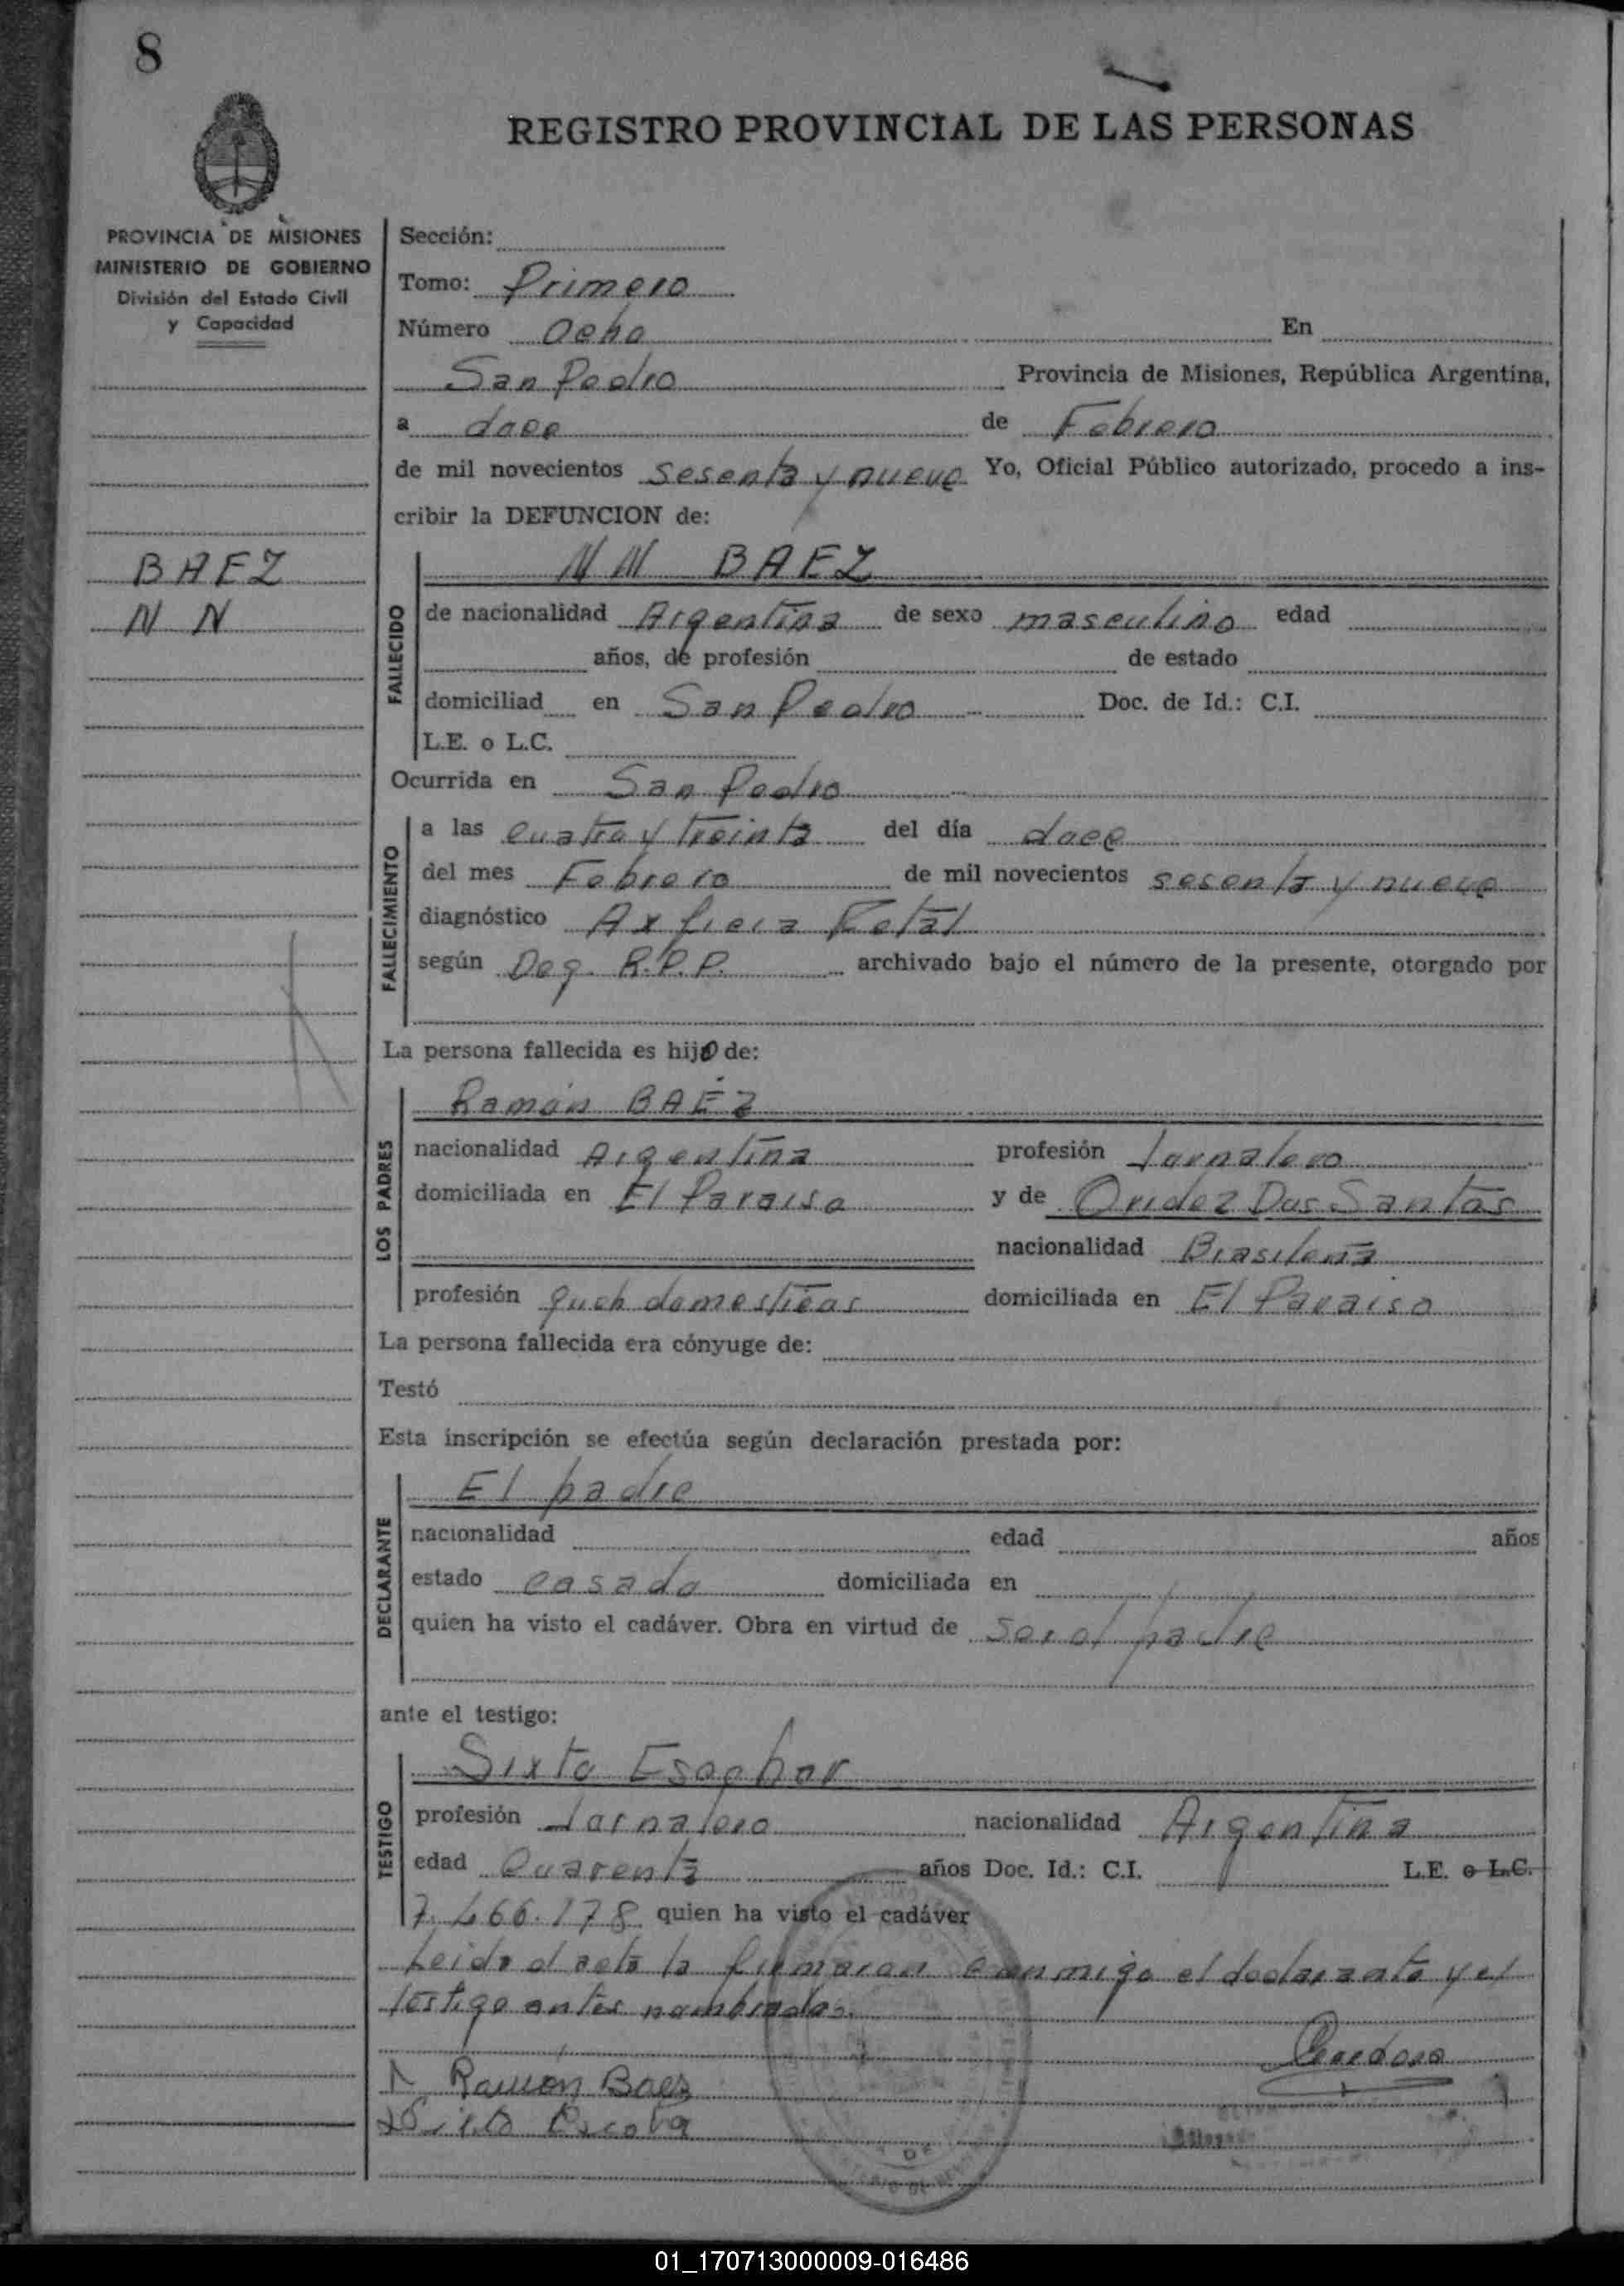 8
REGISTRO PROVINCIAL DE LAS PERSONAS
PROVINCIA DE MISIONES
MINISTERIO DE GOBIERNO
División del Estado Civil
y Capacidad
BAEZ
N N
Sección:
Tomo: Primero
Número Ocho En
San Pedro Provincia de Misiones, República Argentina,
a doce de Febrero
de mil novecientos sesenta y nueve Yo, Oficial Público autorizado, procedo a ins-
cribir la DEFUNCION de:
N N BAEZ
FALLECIDO
de nacionalidad Argentina de sexo masculino edad
años, de profesión de estado
domiciliad en San Pedro Doc. de Id.: C.I.
L.E. o L.C.
Ocurrida en San Pedro
FALLECIMIENTO
a las cuatro y treinta del día doce
del mes Febrero de mil novecientos sesenta y nueve
diagnóstico Axficia Fetal
según Deg. R.P.P. archivado bajo el número de la presente, otorgado por
La persona fallecida es hijo de:
LOS PADRES
Ramón BAEZ
nacionalidad Argentina profesión Jornalero
domiciliada en El Paraiso y de Oridez Dos Santos
nacionalidad Brasileña
profesión queh domesticos domiciliada en El Paraiso
La persona fallecida era cónyuge de:
Testó
Esta inscripción se efectúa según declaración prestada por:
DECLARANTE
El padre
nacionalidad edad años
estado casado domiciliada en
quien ha visto el cadáver. Obra en virtud de ser el padre
ante el testigo:
TESTIGO
Sixto Escobar
profesión Jornalero nacionalidad Argentina
edad Cuarenta años Doc. Id.: C.I. L.E. o L.C.
7.466.178 quien ha visto el cadáver
Leida el acta la firmaron conmigo el declarante y el
testigo antes nombrados.
Cardoso
Ramón Baez
Sixto Escobar
DE
01_170713000009-016486